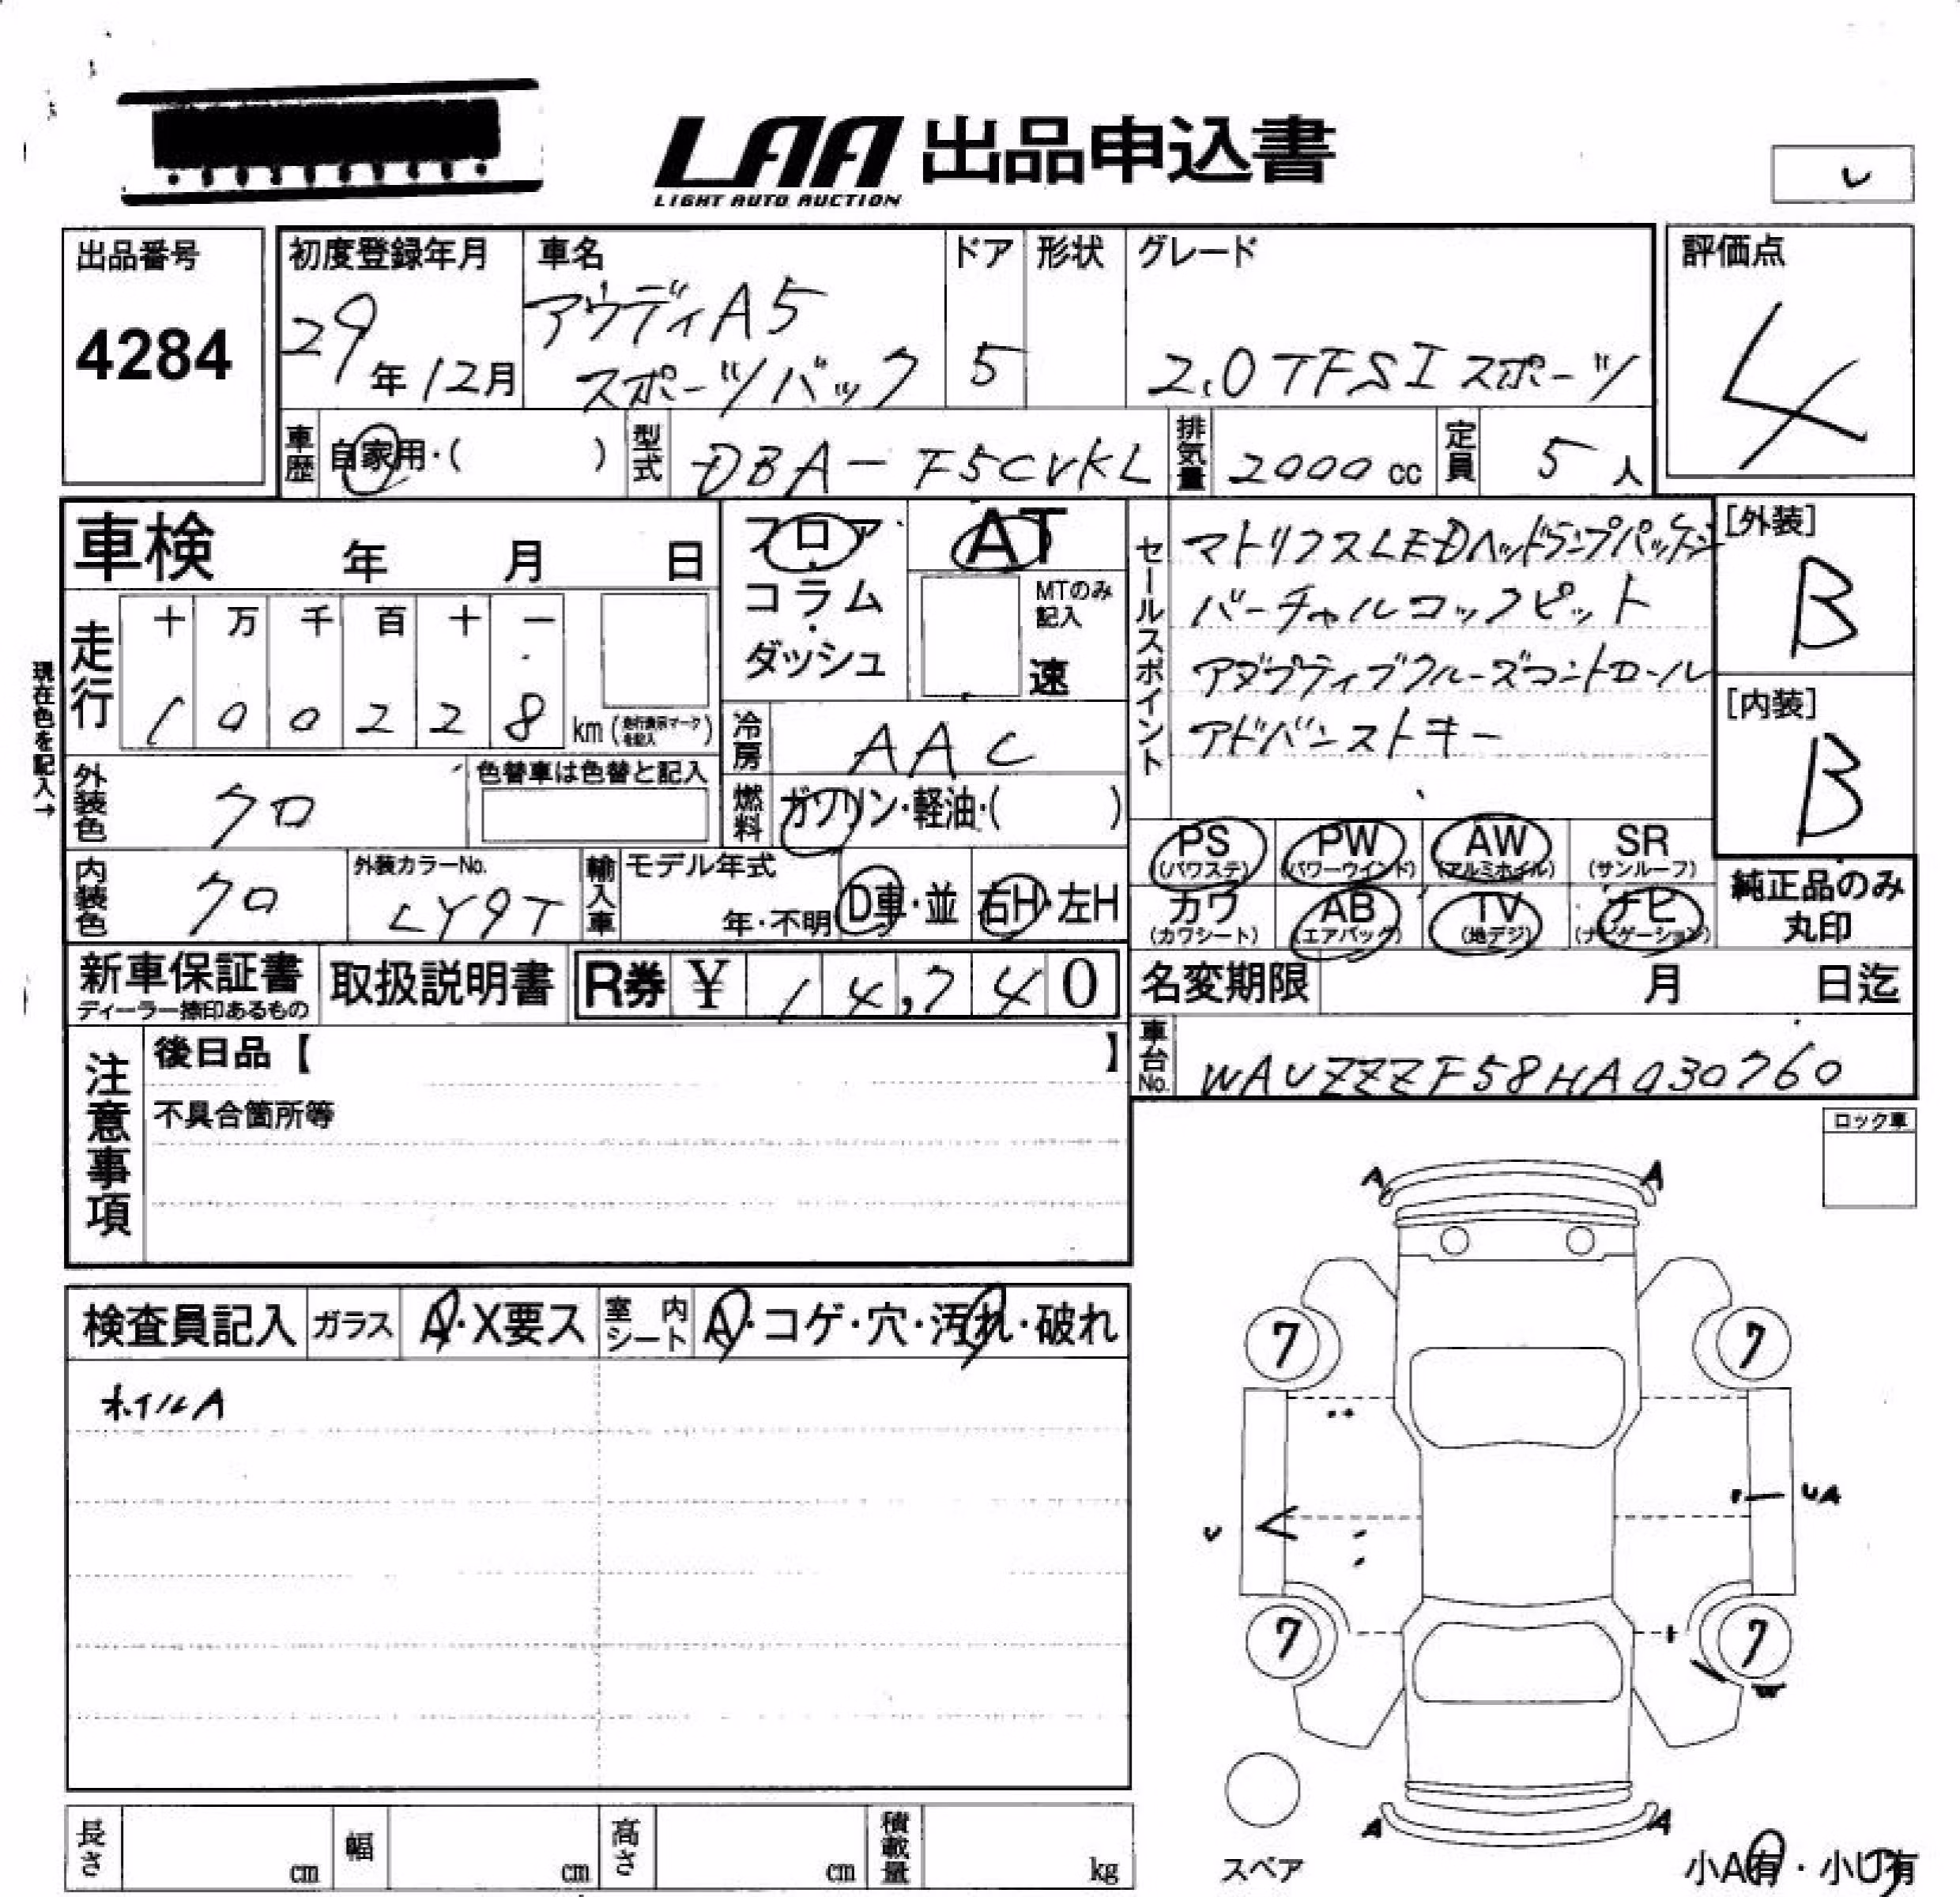 LAA 出品申込書
LIGHT AUTO AUCTION
出品番号
4284
初度登録年月
29年12月
車名
アウディA5
スポーツバック
ドア
5
形状
グレード
2.0TFSIスポーツ
評価点
4
車歴
自家用・( )
型式
DBA-F5CVKL
排気量
2000cc
定員
5人
車検 年 月 日
現在色を記入→
走行
十 万 千 百 十 一
1 0 0 2 2 8 km (走行表示マークを記入)
フロア・
コラム・
ダッシュ
AT
MTのみ
記入
速
セールスポイント
マトリクスLEDヘッドランプパッケージ
バーチャルコックピット
アダプティブクルーズコントロール
アドバンストキー
[外装]
B
[内装]
B
冷房
AAC
燃料
ガソリン・軽油・( )
外装色
クロ
色替車は色替と記入
内装色
クロ
外装カラーNo.
LY9T
輸入車
モデル年式
年・不明
D車・並
右H・左H
PS
(パワステ)
PW
(パワーウインド)
AW
(アルミホイル)
SR
(サンルーフ)
カワ
(カワシート)
AB
(エアバック)
TV
(地デジ)
ナビ
(ナビゲーション)
純正品のみ
丸印
新車保証書
ディーラー捺印あるもの
取扱説明書
R券 ¥ 14,740
名変期限 月 日迄
車台No.
WAUZZZF58HA030760
注意事項
後日品【 】
不具合箇所等
ロック車
検査員記入
ガラス
A・X要ス
室内シート
A・コゲ・穴・汚れ・破れ
ホイルA
A A
7 7
U UA
7 7
W
A A
スペア
小A有・小U有
長さ cm
幅 cm
高さ cm
積載量 kg